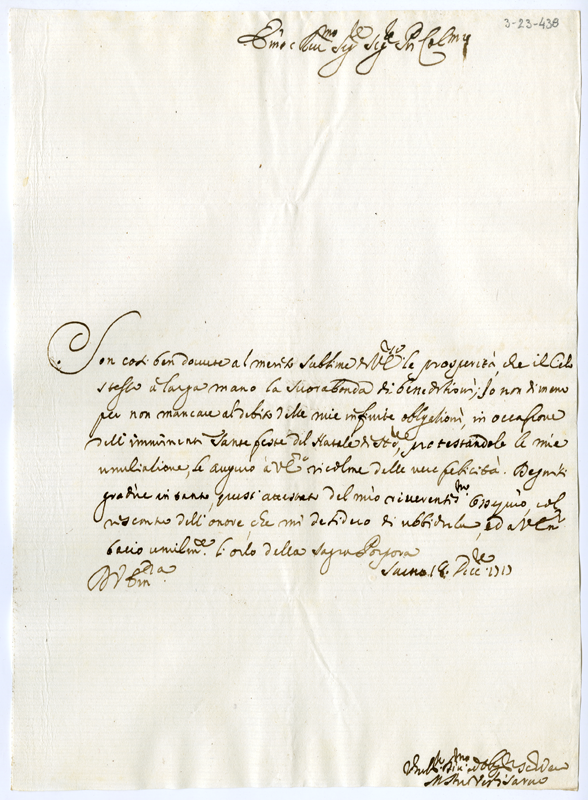 3-23-438
Em.mo e Rev.mo Sig.re Sig.re P.ron Col.mo
Son così ben dovute al merito sublime di V. Em.za le prosperità, che il Cielo
stesso à larga mano la
di benedittioni; Io non di meno
per non mancare al debito delle mie infinite obligationi, in occasione
dell'imminenti Sante feste del Natale di protestandole le mie
umiliatione, le auguro à V. Em.za ricolme delle vere felicità. Degnisi
gradire in tanto, questi attestati del mio riverentis.mo ossequio, col
riscontro dell'onore, che mi desidero di ubbidirla, ed a V. Em.za
bacio umilm.te l'orlo della Sagra Porpora
Di V. Em.za Sarno 18 Dicc.re 1717
Umil.mo Div.mo ed Obl.mo Servidore
Vesc.o di Sarno